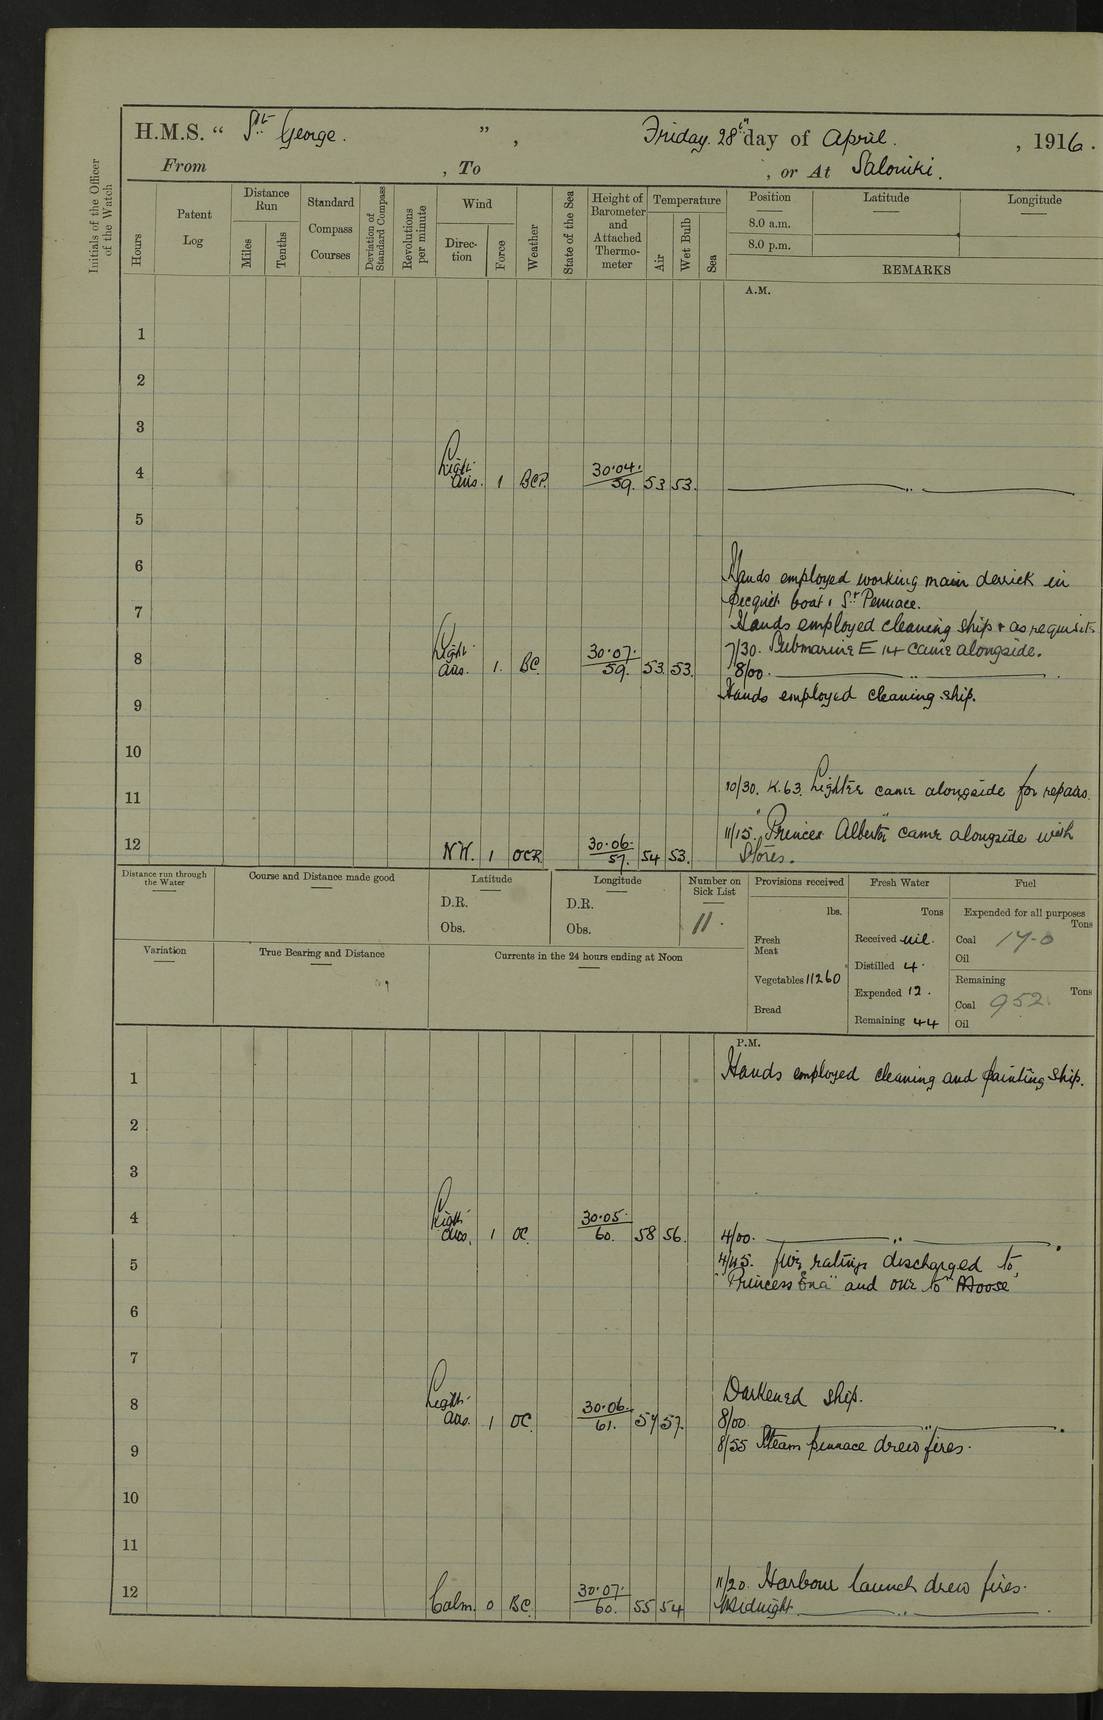 H.M.S. “ St. George. ” , Friday. 28th day of April. , 1916.
From , To , or At Saloniki.
Initials of the Officer of the Watch
Hours
Patent Log
Distance Run
Miles
Tenths
Standard Compass Courses
Deviation of Standard Compass
Revolutions per minute
Wind
Direction
Force
Weather
State of the Sea
Height of Barometer and Attached Thermometer
Temperature
Air
Wet Bulb
Sea
Position Latitude Longitude
8.0 a.m.
8.0 p.m.
REMARKS
A.M.
1
2
3
4 Light airs. 1 BCP. 30.04. 59. 53 53.
5
6
Hands employed working main derrick in
picquet boat & St Pennace.
7
Hands employed cleaning ship & as requisite
7/30. Submarine E 14 came alongside.
8 Light airs. 1. BC. 30.07. 59. 53. 53. 8/00.
Hands employed cleaning ship.
9
10
10/30. K.63. Lighter came alongside for repairs.
11
11/15. "Princes Alberta" came alongside with
12 N.W. 1 OCR 30.06. 57. 54 53. Stores.
Distance run through the Water
Course and Distance made good
Latitude
D.R.
Obs.
Longitude
D.R.
Obs.
Number on Sick List
11.
Provisions received
lbs.
Fresh Meat
Vegetables 11260
Bread
Fresh Water
Tons
Received nil.
Distilled 4.
Expended 12.
Remaining 44
Fuel
Expended for all purposes
Tons
Coal 17-0
Oil
Remaining
Tons
Coal 952.
Oil
Variation
True Bearing and Distance
Currents in the 24 hours ending at Noon
P.M.
Hands employed cleaning and painting ship.
1
2
3
4 Light airs. 1 OC. 30.05. 60. 58 56. 4/00.
4/45. five ratings discharged to
5
"Princess Ena" and one to "Moose"
6
7
Darkened ship.
8 Light airs. 1 OC. 30.06. 61. 57 57. 8/00.
8/55 Steam pinnace drew fires.
9
10
11
11/20. Harbour launch drew fires.
12 Calm. 0 BC. 30.07. 60. 55 54 Midnight